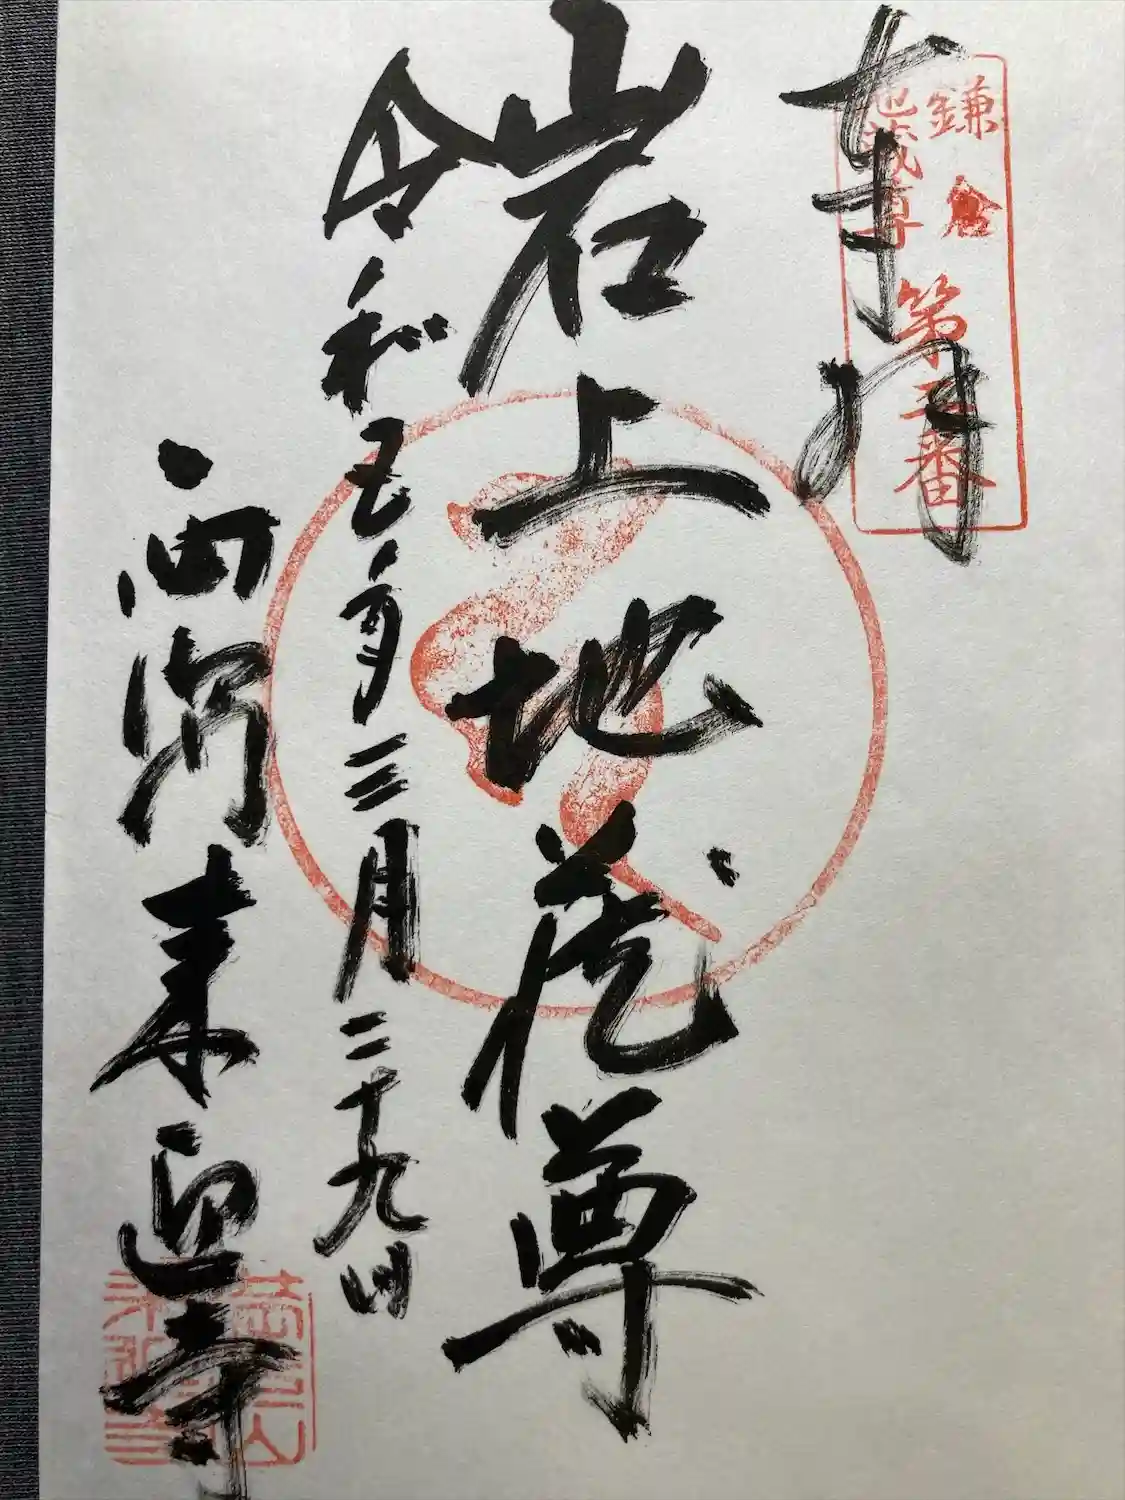 奉拝
鎌倉
地蔵尊
第五番
岩上地蔵尊
令和五年三月二十九日
西御門来迎寺